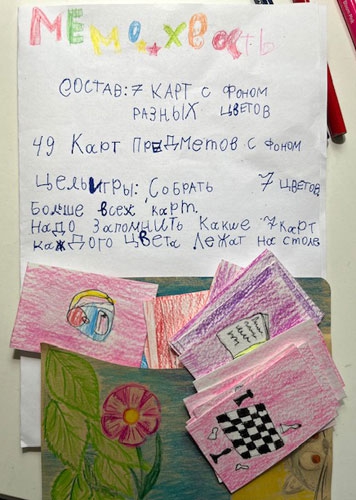 МЕМО-ХВАСТЬ
СОСТАВ: 7 КАРТ С ФОНОМ
РАЗНЫХ ЦВЕТОВ
49 КАРТ ПРЕДМЕТОВ С ФОНОМ
7 ЦВЕТОВ
ЦЕЛЬ ИГРЫ: СОБРАТЬ
БОЛЬШЕ ВСЕХ КАРТ.
НАДО ЗАПОМНИТЬ КАКИЕ 7 КАРТ
КАЖДОГО ЦВЕТА ЛЕЖАТ НА СТОЛЕ